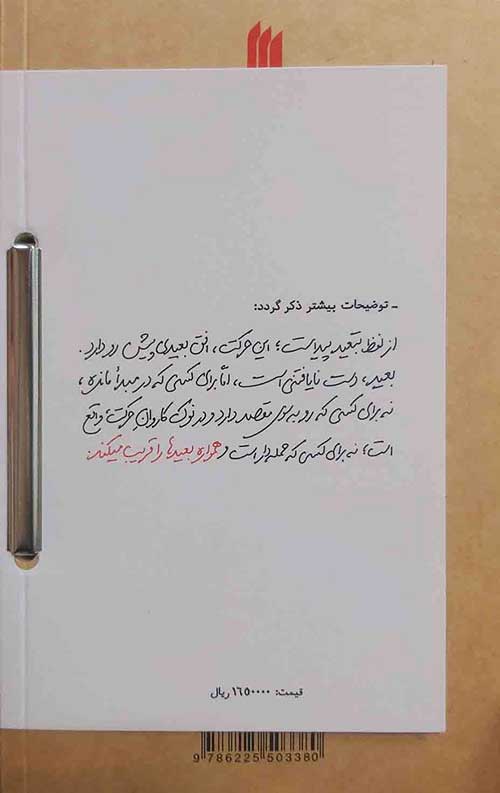 ـ توضیحات بیشتر ذکر گردد:
از لفظ تبعید پیداست؛ این حرکت، افق بعیدی پیش رو دارد.
بعید، دست نایافتنی است، امّا برای کسی که در مبدأ مانده،
نه برای کسی که رو به سوی مقصد دارد و در نوک کاروانِ حرکت واقع
است؛ نه برای کسی که جمله‌دار است و همواره بعیدها را قریب میکند.
قیمت: ۱۶۵۰۰۰۰ ریال
9 786225 503380